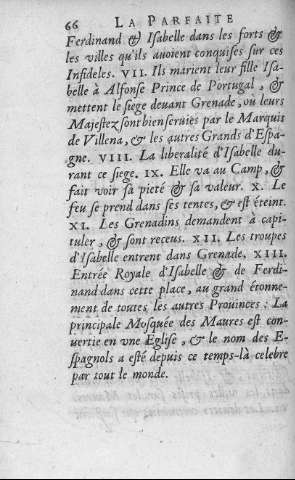 66 LA PARFAITE
Ferdinand & Isabelle dans les forts &
les villes qu'ils avoient conquises sur ces
Infideles. VII. Ils marient leur fille Isa-
belle à Alfonse Prince de Portugal, &
mettent le siege devant Grenade, où leurs
Majestez sont bien servies par le Marquis
de Villena, & les autres Grands d'Espa-
gne. VIII. La liberalité d'Isabelle du-
rant ce siege. IX. Elle va au Camp, &
fait voir sa pieté & sa valeur. X. Le
feu se prend dans ses tentes, & est éteint.
XI. Les Grenadins demandent à capi-
tuler, & sont receus. XII. Les troupes
d'Isabelle entrent dans Grenade. XIII.
Entrée Royale d'Isabelle & de Ferdi-
nand dans cette place, au grand étonne-
ment de toutes les autres Prouinces: La
principale Mosquée des Maures est con-
uertie en vne Eglise, & le nom des E-
spagnols a esté depuis ce temps-là celebre
par tout le monde.